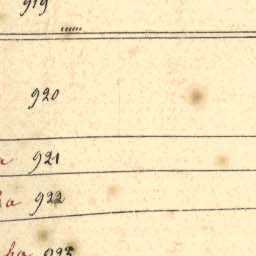 919
920
a 921
ha 922
ha 923